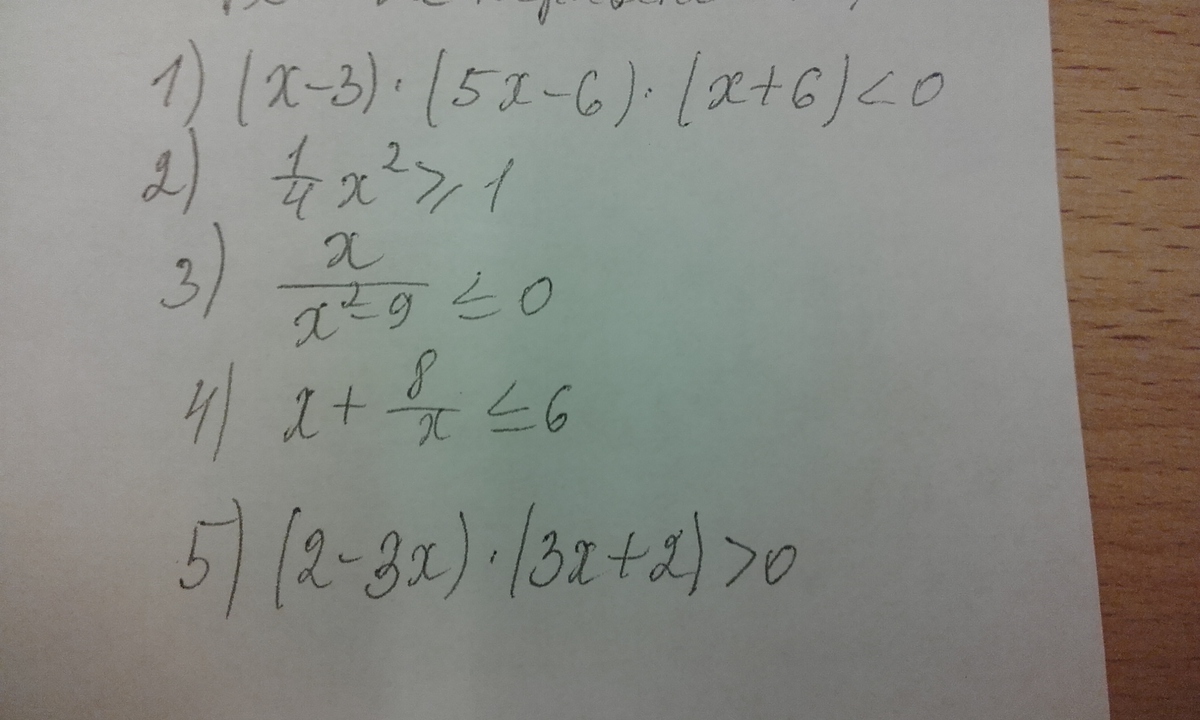 1) (x-3)·(5x-6)·(x+6)<0
2) 1/4 x² ⩾ 1
3) x/(x²-9) ≤ 0
4) x + 8/x ≤ 6
5) (2-3x)·(3x+2)>0